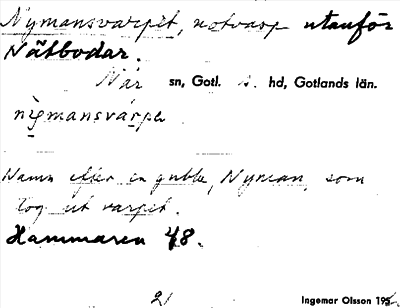 Nymansvarpet, notvarp utanför
Nätbodar.
När sn, Gotl. s. hd, Gotlands län.
nymansvarpe
Namn efter en gubbe, Nyman, som
tog ut varpet.
Hammaren 48.
21 Ingemar Olsson 195